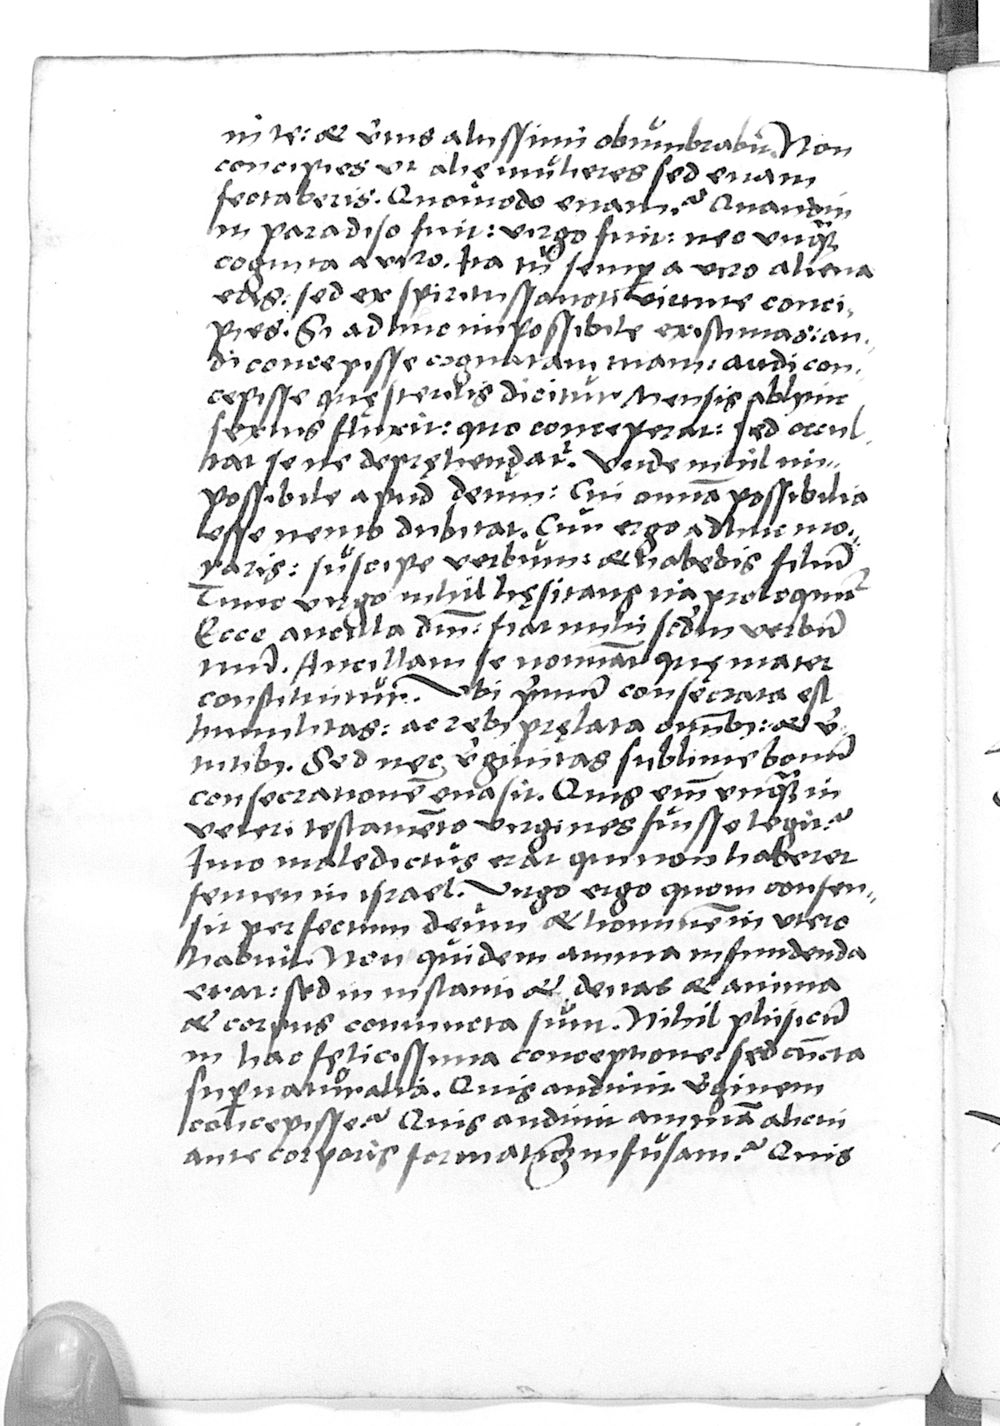 in te: & v̄tus altissimi obumbrabit̄. Non
concipies ut alię mulieres sed etiam
fectaberis. Quomodo etiam? Quandiu
in paradiso fuit: virgo fuit: nec unq̄
cognita a viro. Ita tu semp̄ a viro aliena
eris: sed ex spiritussancti virtute conci-
pies. Si adhuc impossibile existimas: au-
di concepisse cognatam tuam: audi con-
cepisse quę sterilis dicitur. Mensis abhinc
sextus fluxit: quo conceperat: sed occul
tat se ne depręhendat̄. Unde nihil im-
possibile apud deum: Cui om̄ia possibilia
esse nemo dubitat. Cur ergo adhuc mo-
raris: suscipe verbum: & habebis filiū
Tunc virgo nihil hęsitans ita proloquit̄
Ecce ancilla dn̄i: fiat mihi scd̄m verbū
tuū. Ancillam se nominat quę mater
constituitur. Ubi p̄mum consecrata est
humilitas: ac rebꝫ pręlata omnibꝫ: & v̄-
tutibꝫ. Sed nec v̄ginitas sublime bonū
consecrationē evasit. Quis em̄ unq̄ in
veteri testamēto virgines fuisse legit?
Imo maledictus erat qui non haberet
semen in israel. Virgo ergo quom consen-
sit perfectum deum & hominē in utero
habuit. Non quidem anima infundenda
erat: sed in instanti & deitas & anima
& corpus coniuncta sunt. Nihil phisicū
in hac fęlicissima conceptione: sed cūcta
sup̄naturalia. Quis audivit v̄ginem
concepisse? Quis audivit animā alicui
ante corporis formationē infusam? Quis